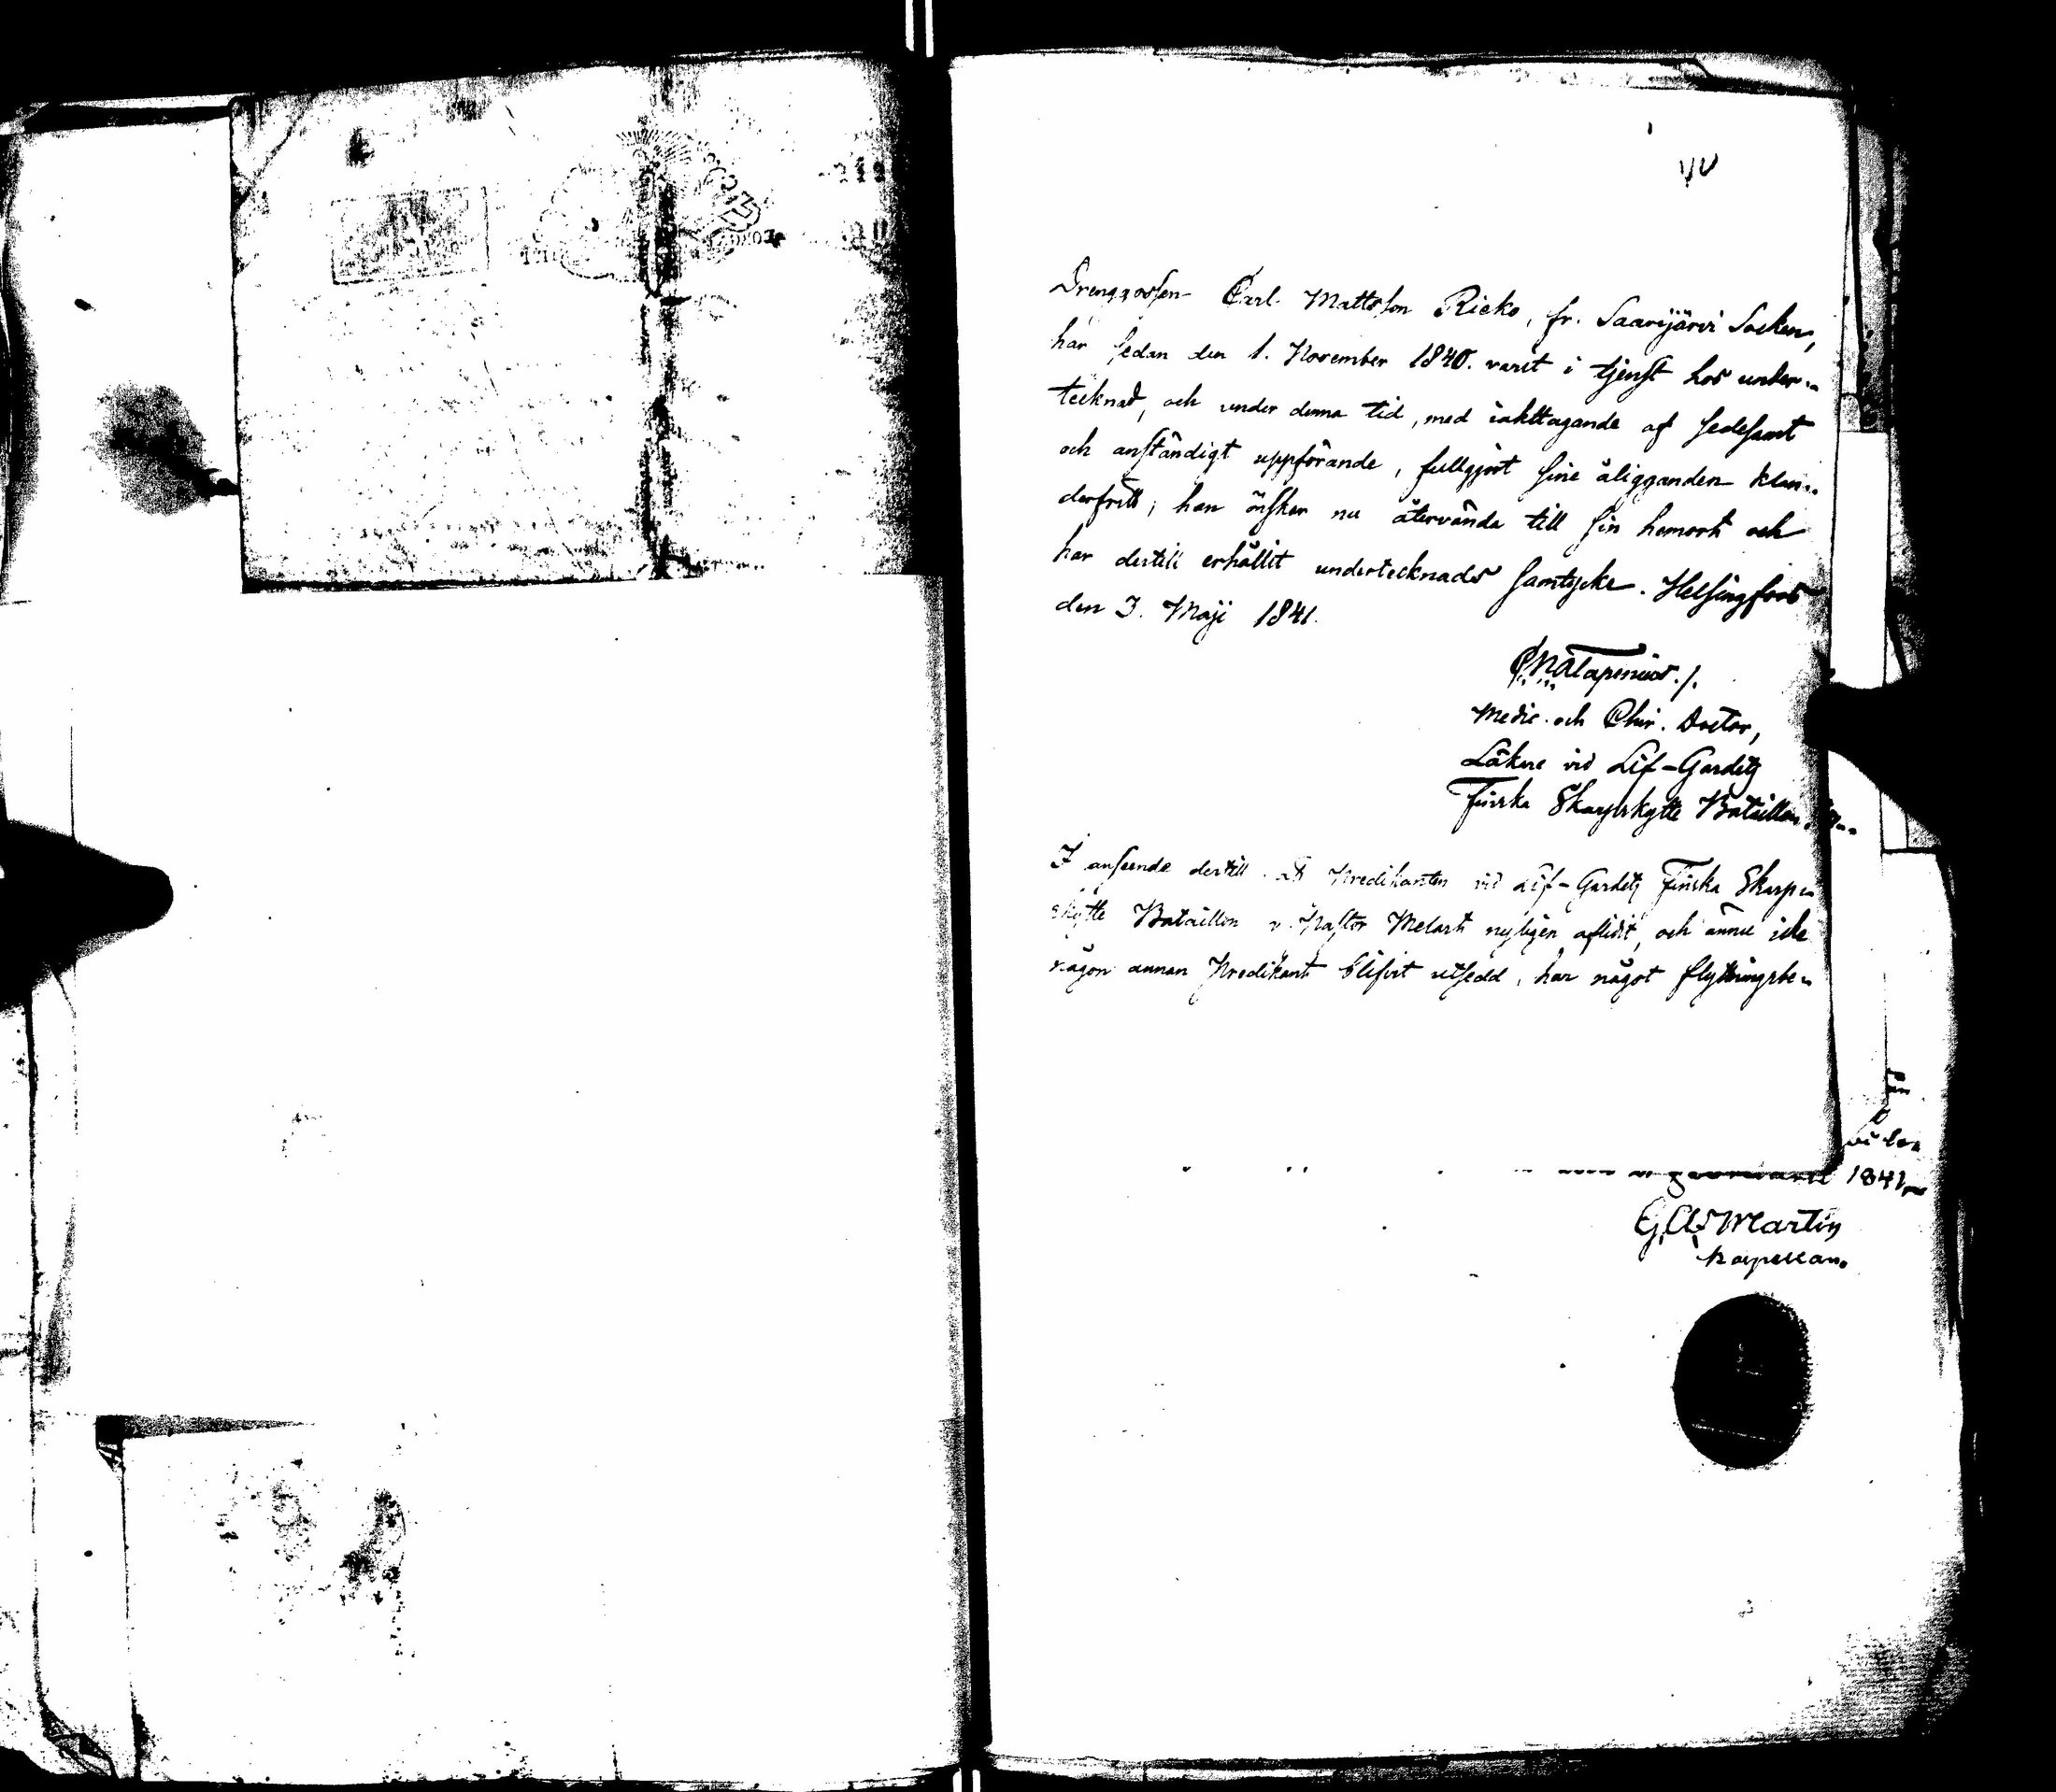 Drenggossen Carl Mattsson Rieko, fr. Saarijärvi Socken,
har sedan den 1. November 1840. varit i tjenst hos under-
tecknad, och under denna tid, med iakttagande af sedesamt
och anständigt uppförande, fullgjort sine åligganden klan-
derfritt; han önskar nu återvända till sin hemort och
har dertill erhållit undertecknads samtycke. Helsingfors
den 3. Maji 1841.
Medic. och Chir. Doctor,
Läkare vid Lif-Gardets
Finska Skarpskytte Bataillon
I anseende dertill att Predikanten vid Lif-Gardets Finska Skarp-
skytte Bataillon v. Pastor Melart nyligen aflidit, och ännu icke
någon annan Predikant blifvit utsedd, har något flyttningsbe-
1841
G, Martin
Kapellan.